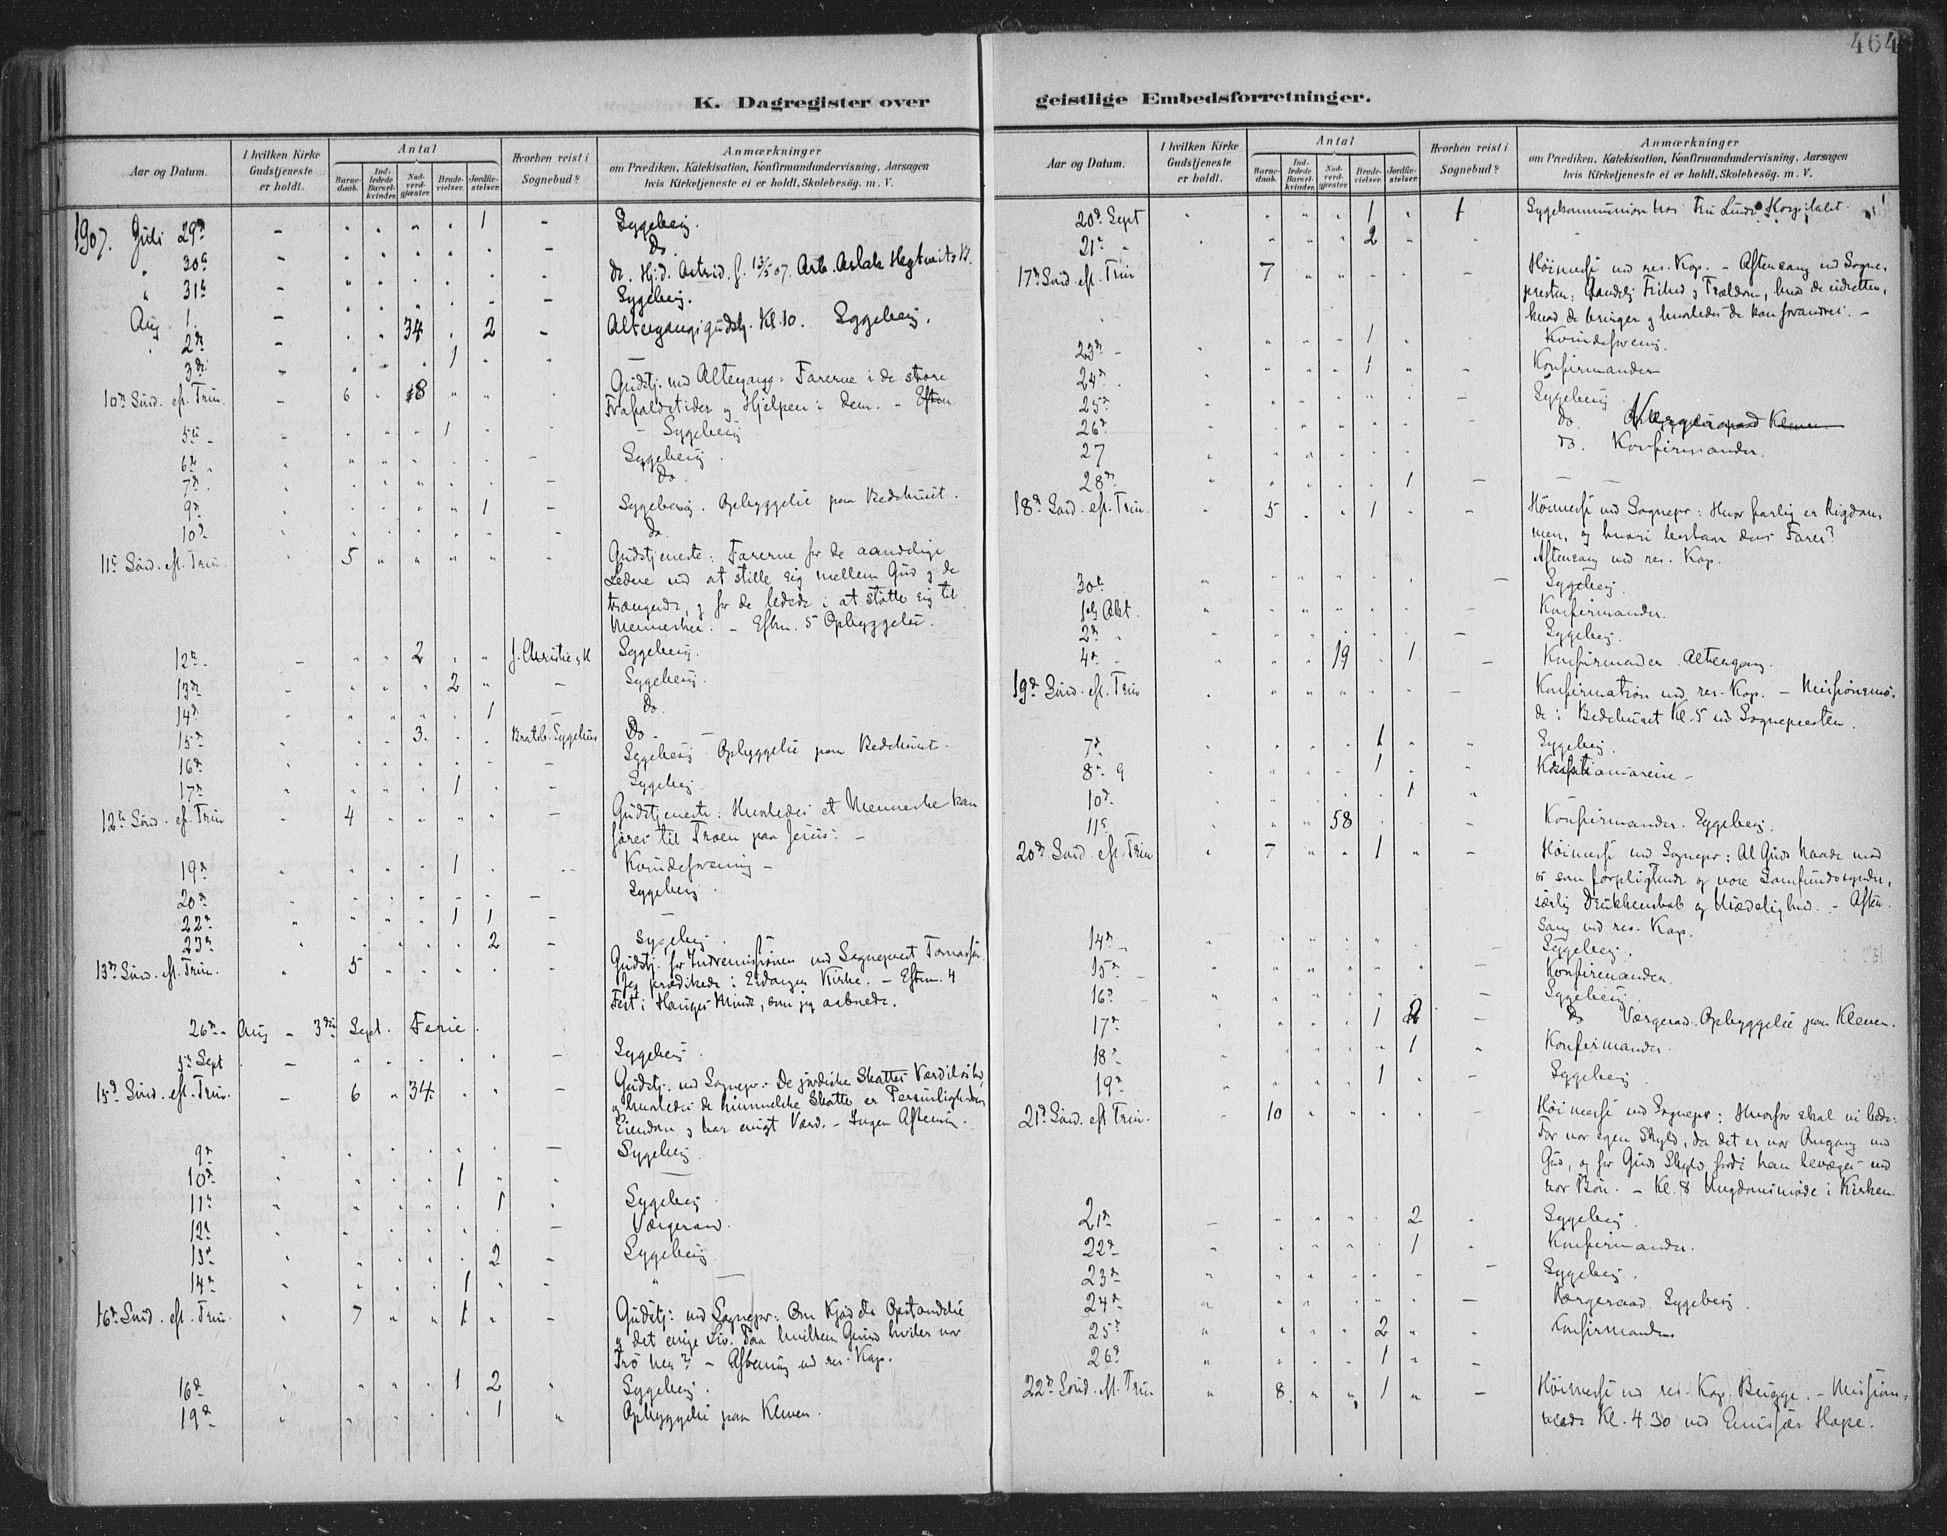 464
K. Dagregister over
geistlige Embedsforretninger.
Aar og Datum. I hvilken Kirke Gudstjeneste er holdt. Antal Barnedaab. Indledede Barselkvinder. Nadverdgjæster. Brudevielser. Jordfæstelser. Hvorhen reist i Sognebud?
Anmærkninger
om Prædiken, Katekisation, Konfirmandundervisning, Aarsagen
hvis Kirketjeneste ei er holdt, Skolebesøg. m. V.
1907. Juli 29de 1 Sygebesøg.
30te Do.
31te do. Hjd. Astrid. f. 13/5 07. Arb. Aslak
Sygebesøg.
Aug. 1. 34 2 Altergangsgudstj. Kl. 10. Sygebesøg.
2den 1
3die
10de Sønd. ef. Trin. 6 8 Gudstj. med Altergang: Farerne i de store
Frafaldstider og Hjelpen i dem.
5te 1 Sygebesøg
6te Sygebesøg.
7de Do.
9de 1 Sygebesøg. Opbyggelse paa Bedehuset.
10de Do.
11te Sønd. ef. Trin. 5 Gudstjeneste: Farerne for de aandelige
Ledere ved at stille sig mellem Gud og de
trængende, og for de ledede i at støtte sig til
Mennesker. - Efterm. 5 Opbyggelse.
12te 2 Sygebesøg.
13de 2 Sygebesøg.
14de 1 Do.
15de 3 Bratsb. Sygehus Do.
16de Sygebesøg Opbyggelse paa Bedehuset.
17de 1 Sygebesøg
12te Sønd. ef. Trin 4 Gudstjeneste: Hvorledes et Menneske kan
føres til Troen paa Jesus.
19de 1 Kvindeforening
20de Sygebesøg.
22de 1 1
23de 2 Sygebesøg.
13de Sønd. ef. Trin. 5 Gudstj. for Indremissionen ved Sogneprest
Jeg prædikede i Eidanger Kirke. - Efterm. 4
Fest i Hauges Minde, som jeg aabnede.
26de Aug - 3die Sept. Ferie.
5te Sept Sygebesøg.
15de Sønd. ef. Trin. 6 34 Gudstj. ved Sognepr: De jordiske Skatters Værdiløshed,
og hvorledes de himmelske Skatte er Personlighedens
Eiendom og har evigt Værd. - Ingen Aftensang.
9de Sygebesøg.
10de 1
11te 1 Sygebesøg
12te Værgeraad.
13de 2 Sygebesøg
14de 1
16de Sønd. ef. Trin. 7 1 Gudstj: ved Sognepr: Om Kjødets Opstandelse
og det evige Liv. Paa hvilken Grund hviler vor
Tro her? - Aftensang ved res. Kap.
16de 1 2 Sygebesøg.
19de 1 Opbyggelse paa Kleven.
Aar og Datum. I hvilken Kirke Gudstjeneste er holdt. Antal Barnedaab. Indledede Barselkvinder. Nadverdgjæster. Brudevielser. Jordfæstelser. Hvorhen reist i Sognebud?
Anmærkninger
om Prædiken, Katekisation, Konfirmandundervisning, Aarsagen
hvis Kirketjeneste ei er holdt, Skolebesøg. m. V.
20de Sept 1 1 Sygekommunion hos Fru Lund Hospitalet.
21de 2
17de Sønd. ef. Trin 7 Høimesse ved res. Kap. - Aftensang ved Sogne-
presten: Aandelig Frihed og Trældom, hvad de
hvad de bringer og hvorledes de kan forandres.
23de 1 Kvindeforening.
24de 1 Konfirmander
25de Sygebesøg
26de do. Værgeraad Kleven
27 do. Konfirmander.
28de 1
18de Sønd. ef. Trin. 5 1 Høimesse ved Sognepr: Hvor farlig er Rigdom-
men, og hvori bestaar dens Farer?
Aftensang ved res. Kap.
30te Sygebesøg.
1ste Okt. Konfirmander.
2den Sygebesøg.
4de 19 1 Konfirmander. Altergang.
19de Sønd. ef. Trin Konfirmation ved res. Kap. - Missionsmø-
de i Bedehuset Kl. 5 ved Sognepresten.
7de 1 Sygebesøg.
8de 9 1
10de 1
11te 58 Konfirmander. Sygebesøg.
20de Sønd. ef. Trin 7 1 Høimesse ved Sognepr: Al Guds Naade mod
os som forpligtende og vore Samfundssynder,
særlig Drukkenskab og Usædelighed. - Aften-
sang ved res. Kap.
14de Sygebesøg.
15de Konfirmander.
16de Sygebesøg.
17de 1 2 do Værgeraad. Opbyggelse paa Kleven.
18de 1 Konfirmander.
19de 1 Sygebesøg
21de Sønd. ef Trin. 10 Høimesse ved Sognepr: Hvorfor skal vi bede:
For vor egen Skyld, da det er vor Omgang med
Gud, og for Guds Skyld, fordi han bevæges ved
vor Bøn. - Kl. 8 Ungdomsmøde i Kirken.
21de 2 Sygebesøg.
22de 1 Konfirmander.
23de Sygebesøg.
24de Værgeraad Sygebesøg.
25de 2 Konfirmander.
26de 1
22de Sønd. ef. Trin 8 1 Høimesse ved res. Kap. Bugge. - Mission-
møde Kl. 4.30 ved Emissær Hope.